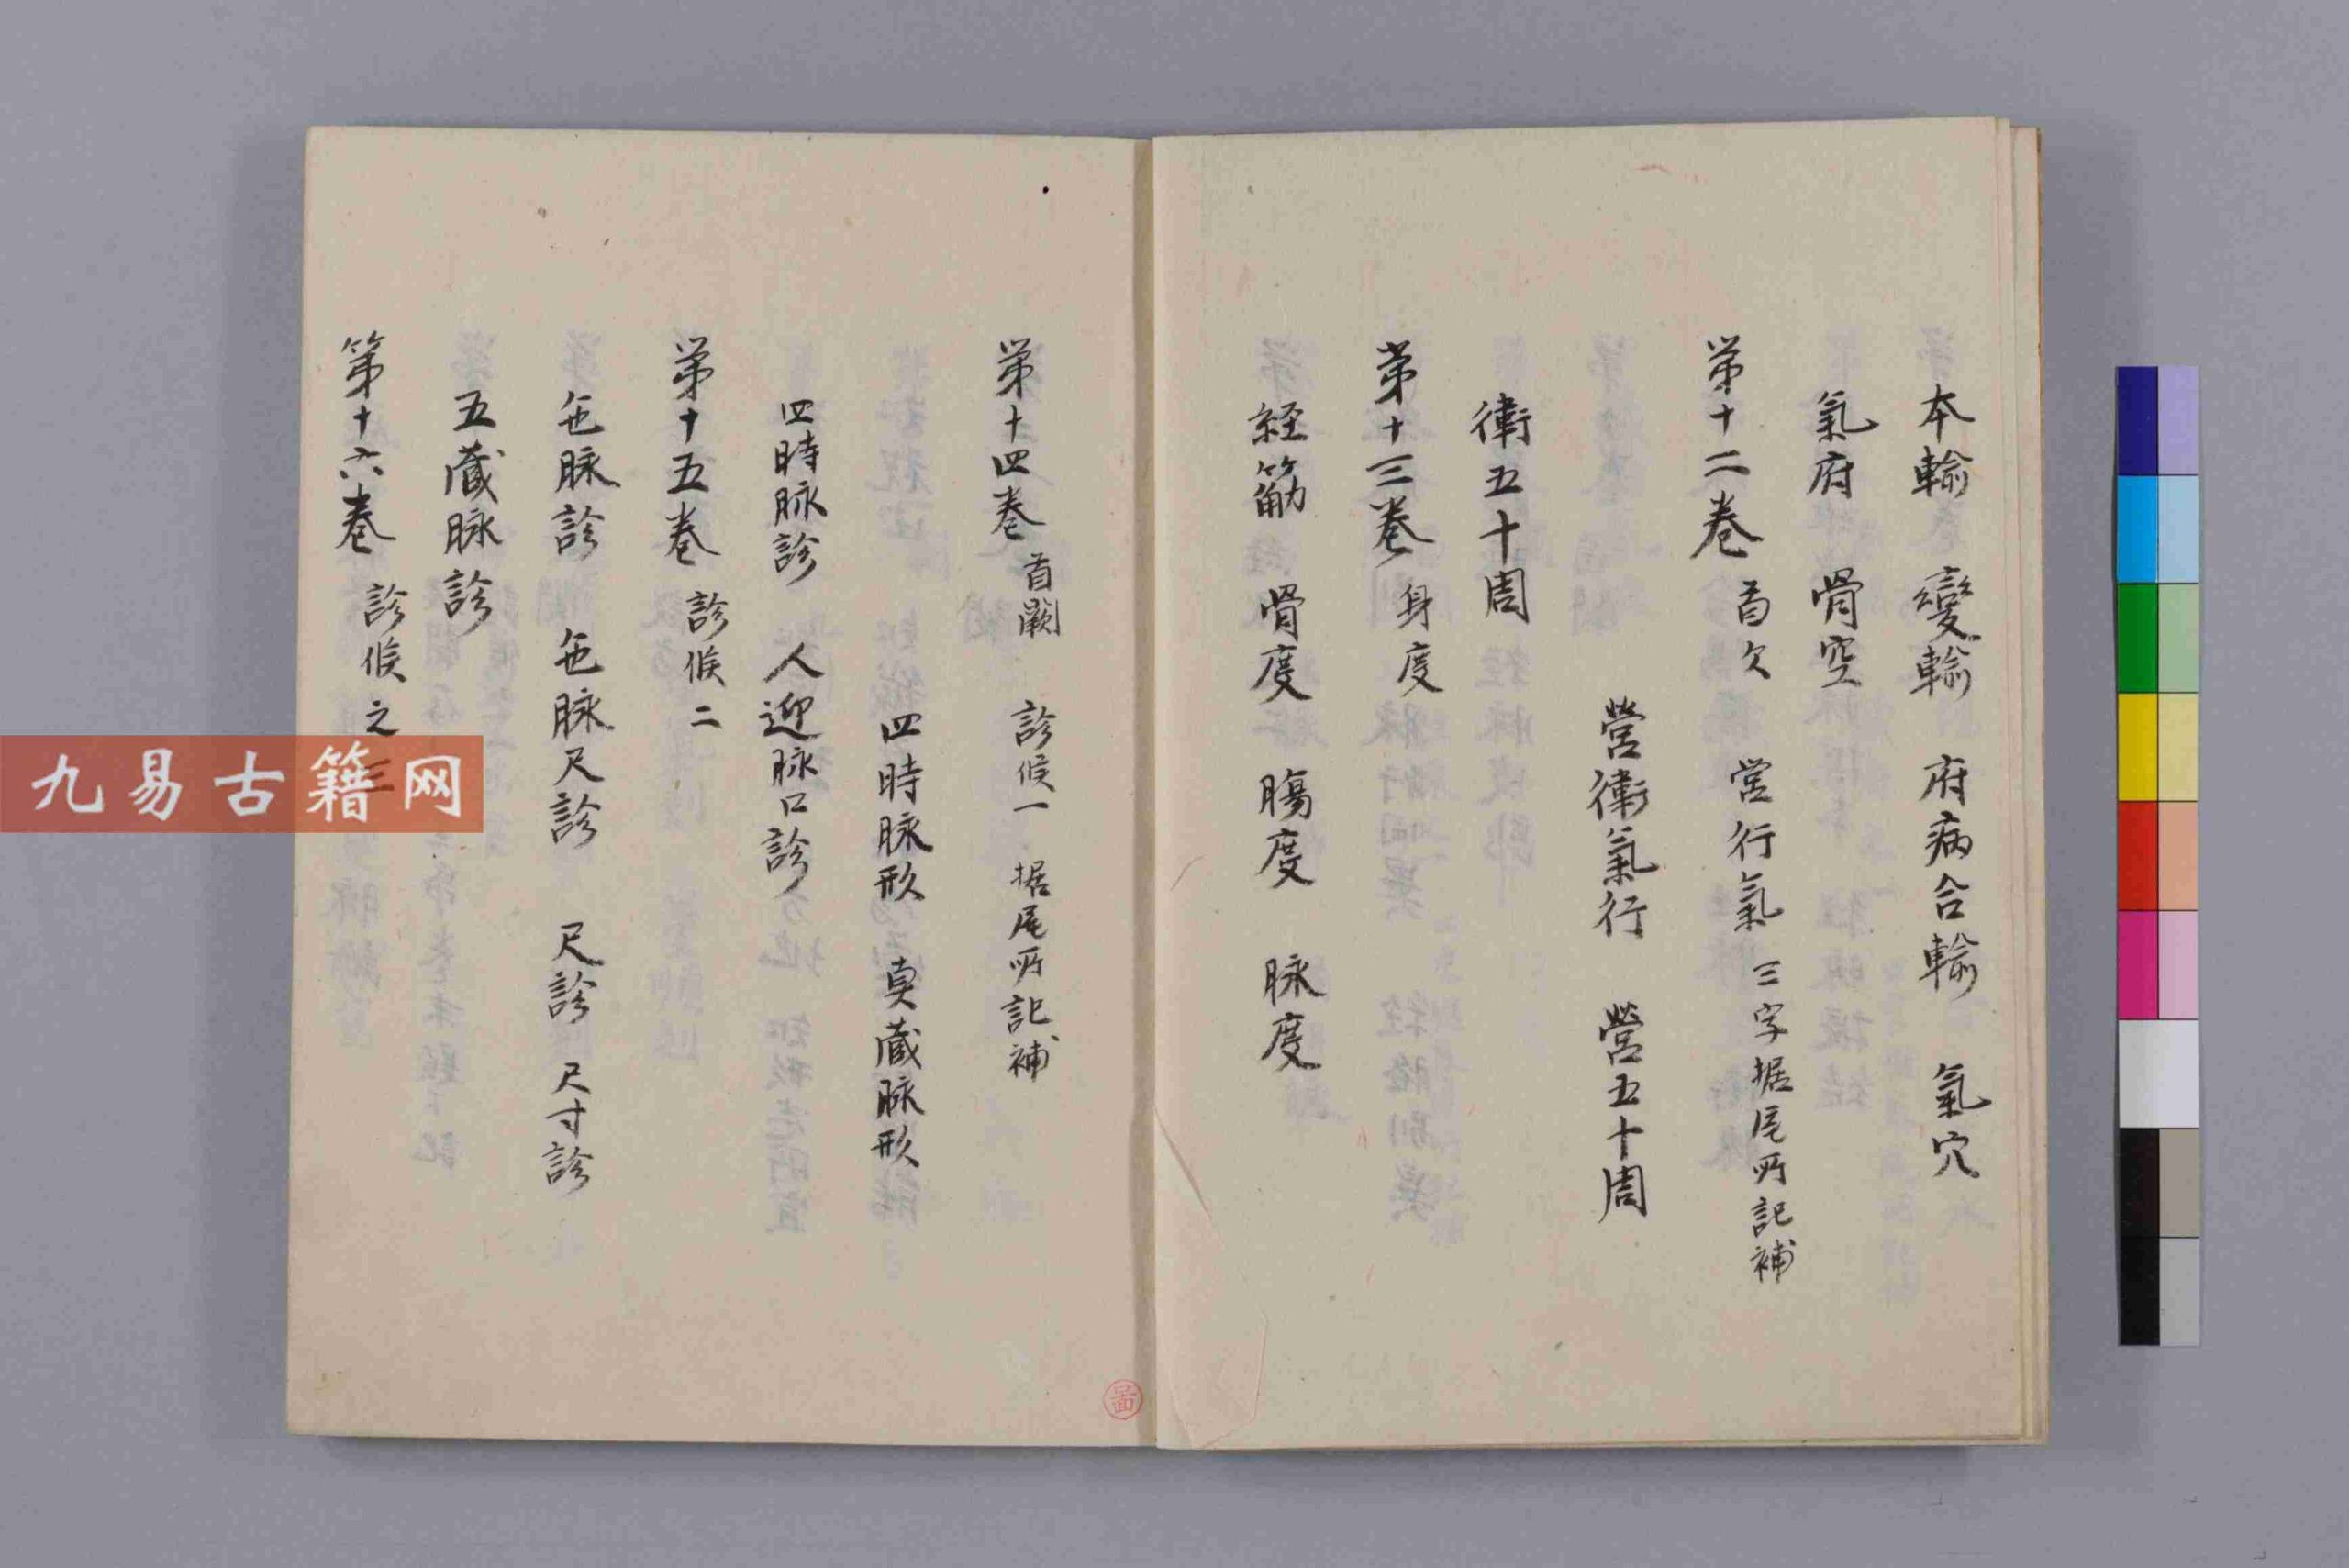 本輸　變輸　府病合輸　氣穴
氣府　骨空
第十二卷　首欠　營行氣　三字据尾所記補
營衛氣行　營五十周
衛五十周
第十三卷　身度
経筋　骨度　腸度　脉度
第十四卷　首闕　診候一　据尾所記補
四時脉形　真藏脉形
四時脉診　人迎脉口診
第十五卷　診候二
色脉診　色脉尺診　尺診　尺寸診
五藏脉診
第十六卷　診候之三
九易古籍网